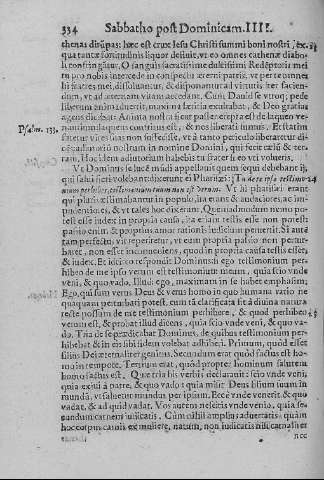 334 Sabbatho post Dominicam. IIII.
thenas dirũpas: hæc est crux Iesu Christi summi boni nostri, ex
qua tantæ fortitudinis liquor defluit, vt eo omnes cathenæ diabo-
li confringãtur. O sanguis sacratissime dulcissimi Redẽptoris mei
tu pro nobis intercede in conspectu æterni patris, vt per te omnes
hi fratres mei, dissoluantur, & disponantur ad virtutis iter facien-
dum, vt ad æternam vitam accedant. Cum Dauid se vidit, prope
liberum enim aduertit, maxima lætitia exultabat, & Deo gratias
agens dicebat: Anima nostra sicut passer erepta est de laqueo ve-
Psalm. 123. nantium, laqueus contritus est, & nos liberati sumus. Etsi
fatetur vires suas non suffecisse, vt à tanto periculo liberaretur di-
cẽs: adiutoriũ nostrum in nomine Domini, qui fecit cælũ & ter-
ram. Hoc idem adiutorium habebis tu frater si eo vti volueris.
Vt Dominus se lucẽ mũdi appellauit quem sequi debebant ij,
qui salui fieri volebant dixerunt ei Pharisæi: Tu de te ipso testimo-
nium perhibes, testimonium tuum non est verum. Vt hi pharisæi erant
qui plurimũ æstimabantur in populo, ita erant & audaciores, ac im-
pudentiores, & vt tales hoc dixerunt. Quemadmodum nemo po-
test esse iudex in propria causa, ita etiam testis esse non potest:
passio enim & proprius amor rationis iudicium peruertit. Si autẽ
tam perfectus vir reperiretur, vt eum propria passio non pertur-
baret, non esset inconueniens, quod in propria causa testis esset,
& iudex. Et idcirco respõdit Dominus: si ego testimonium per-
hibeo de me ipso verum est testimonium meum, quia scio vnde
veni, & quo vado. Illud ego, maximam in se habet emphasim;
Ego, qui sum verus Deus & verus homo in quo humana ratio ne
quaquam perturbari potest, cum tã clarificata sit à diuina natura
recte possum de me testimonium perhibere, & quod perhibeo
verum est, & probat illud dicens, quia scio vnde veni, & quo va-
do. Tria de se prædicabat Dominus, de quibus testimonium per-
hibebat & in eis sibi fidem volebat adhiberi. Primum, quòd esset
filius Dei æternaliter genitus. Secundum erat quòd factus est ho-
mo in tempore. Tertium erat, quòd propter hominum salutem
homo factus est. Quæ tria his verbis declarauit: scio vnde veni,
quia exiui à patre, & quo vado: quia misit Deus filium suum in
mundũ, vt saluetur mundus per ipsum. Ecce vnde venerit & quo
vadat, & ad quid vadat. Vos autem nescitis vnde venio, quia se-
cundum carnem iudicatis. Cum nihil amplius aduertatis: quàm
hoc corpus carnis ex muliere, natum, non iudicatis nisi carnaliter
nec